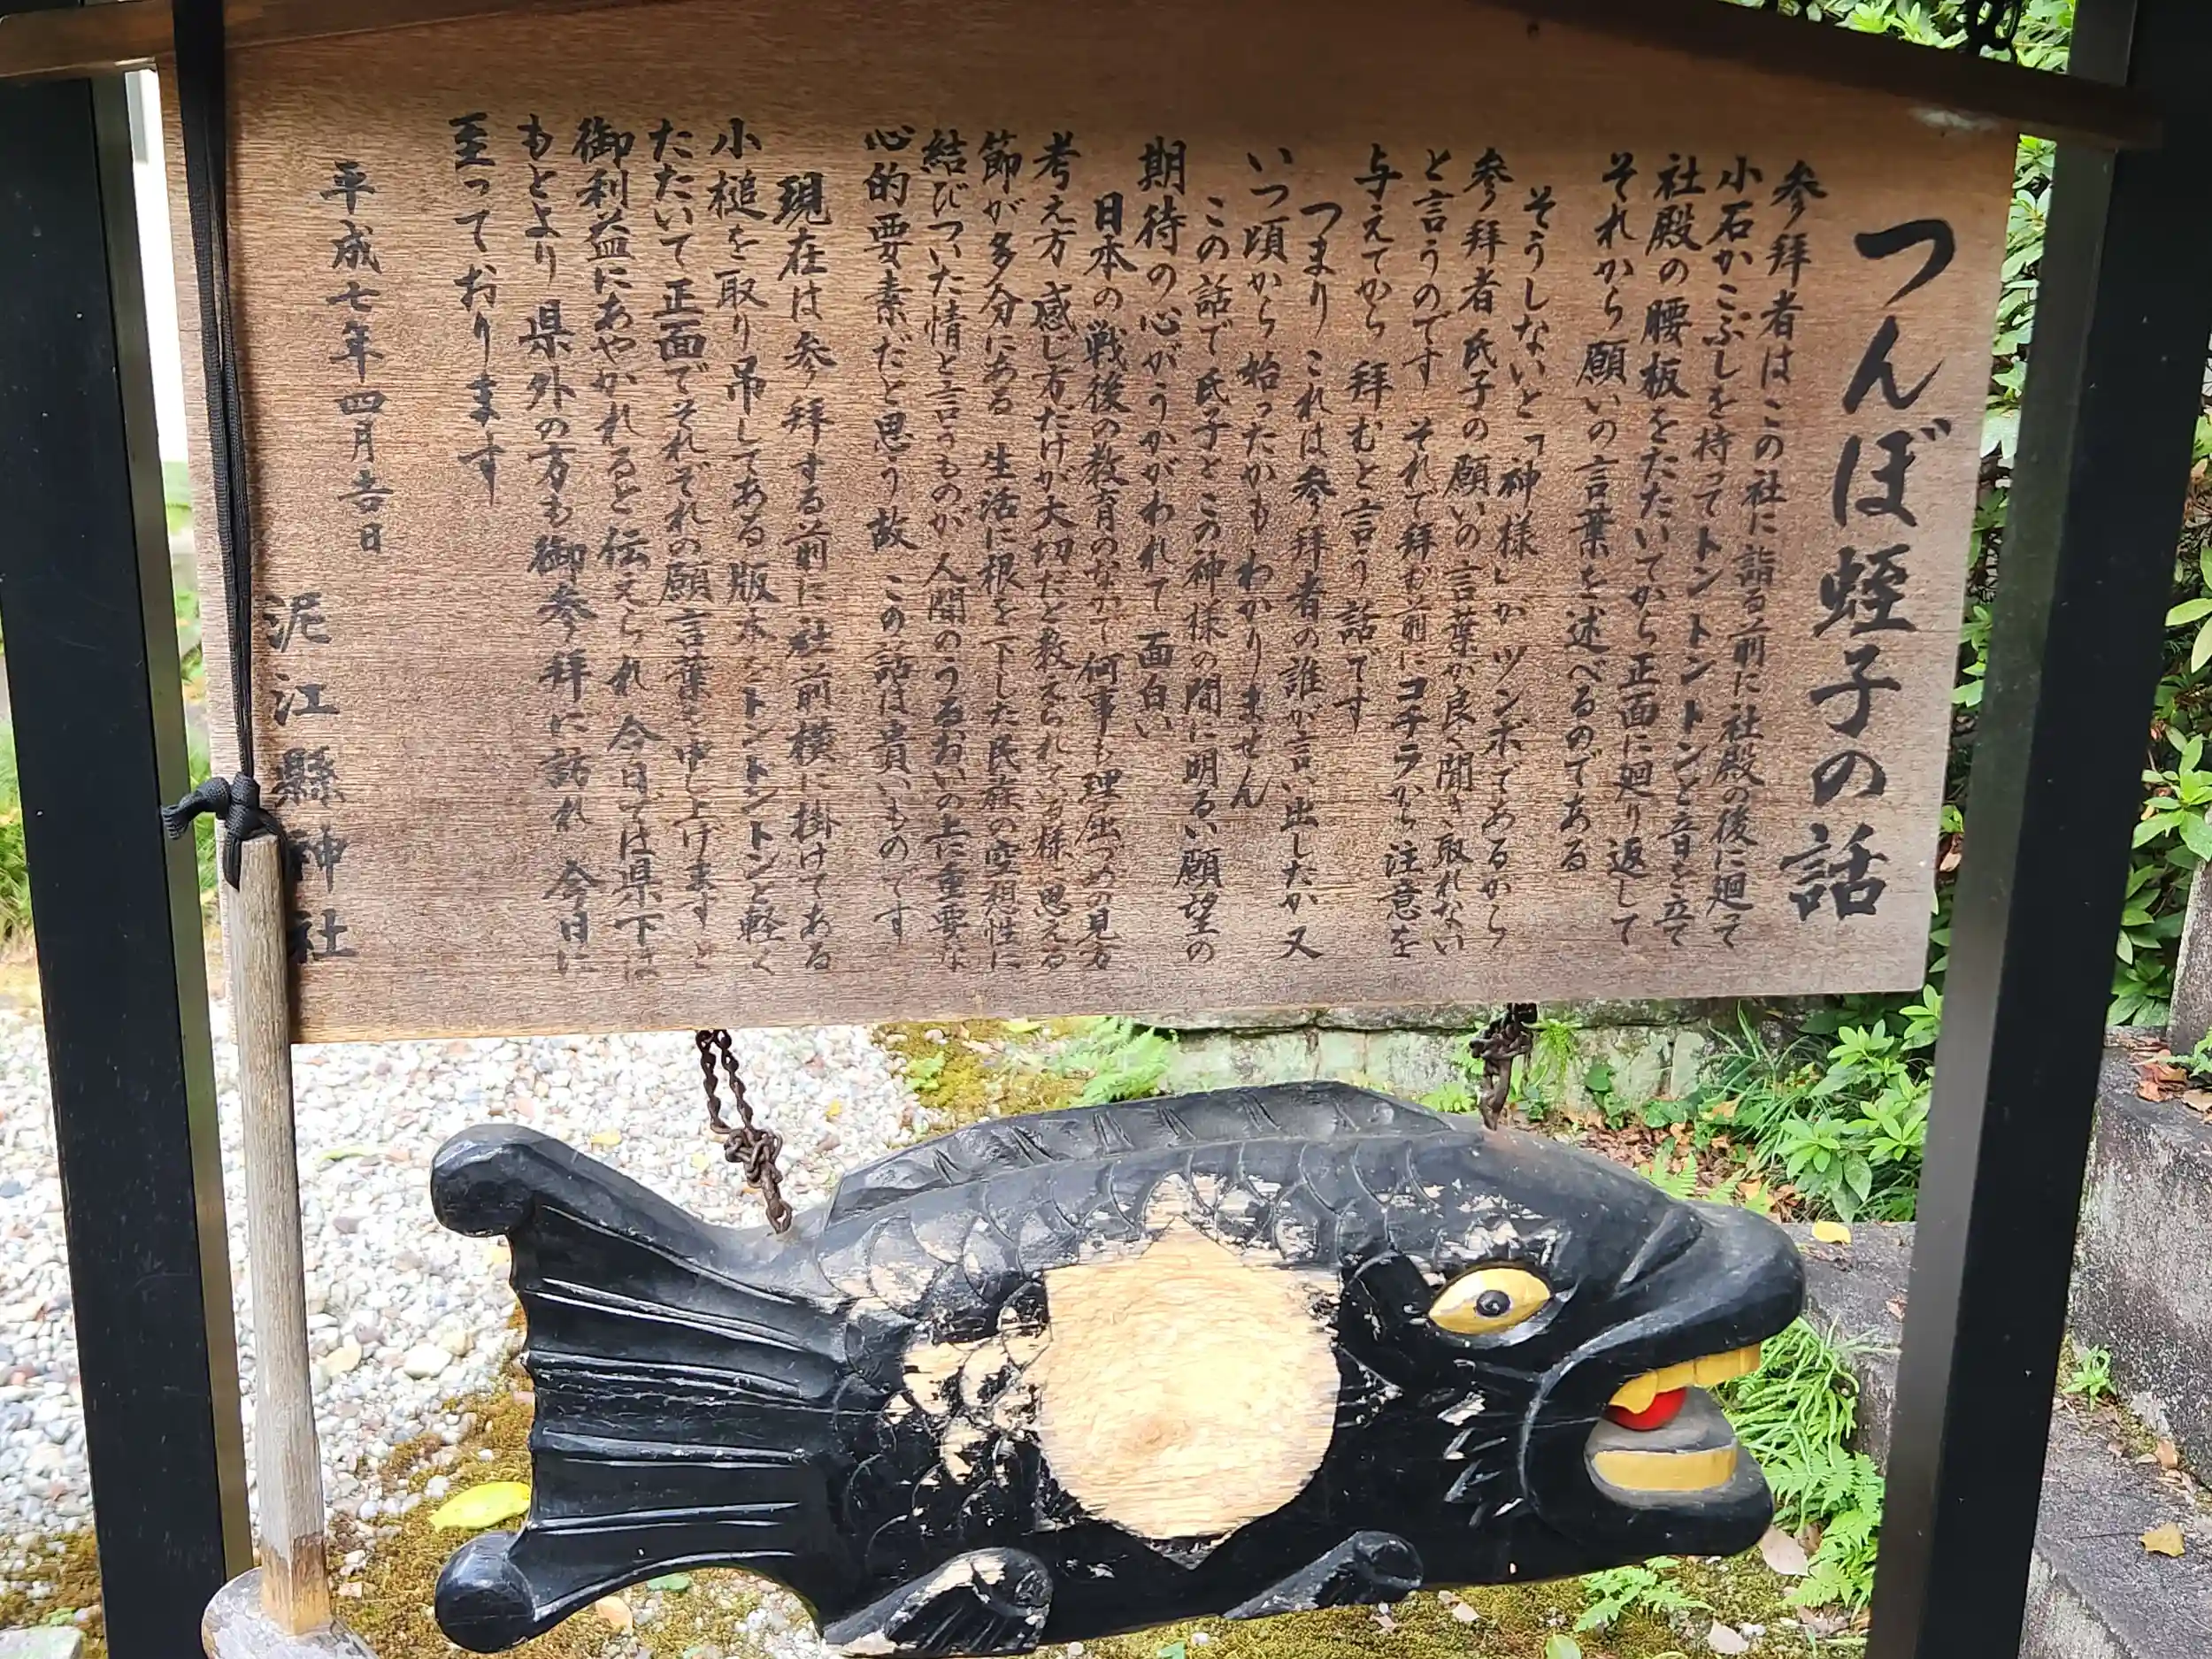 つんぼ蛭子の話
参拝者はこの社に詣る前に社殿の後に廻って
小石かこぶしを持ってトントントンと音を立て
社殿の腰板をたたいてから正面に廻り返して
それから願いの言葉を述べるのである
そうしないと「神様」がツンボであるから
参拝者氏子の願いの言葉が良く聞き取れない
と言うのです それで拝む前にコチラから注意を
与えてから 拝むと言う話です
つまり これは参拝者の誰が言い出したか又
いつ頃から始ったかも わかりません
この話で氏子とこの神様の間に明るい願望の
期待の心がうかがわれて 面白い
日本の戦後の教育のなかで何事も理屈づめの見方
考え方 感じ方だけが大切だと教えられている様に思える
節が多分にある 生活に根を下した民族の空想性に
結びついた情と言うものが人間のうるおいの上に重要な
心的要素だと思う故 この話は貴いものです
現在は参拝する前に社前横に掛けてある
小槌を取り吊してある版木をトントントンと軽く
たたいて正面でそれぞれの願言葉を申し上げますと
御利益にあやかれると伝えられ 今日では県下は
もとより 県外の方も御参拝に訪れ 今日に
至っております
平成七年四月吉日
泥江縣神社